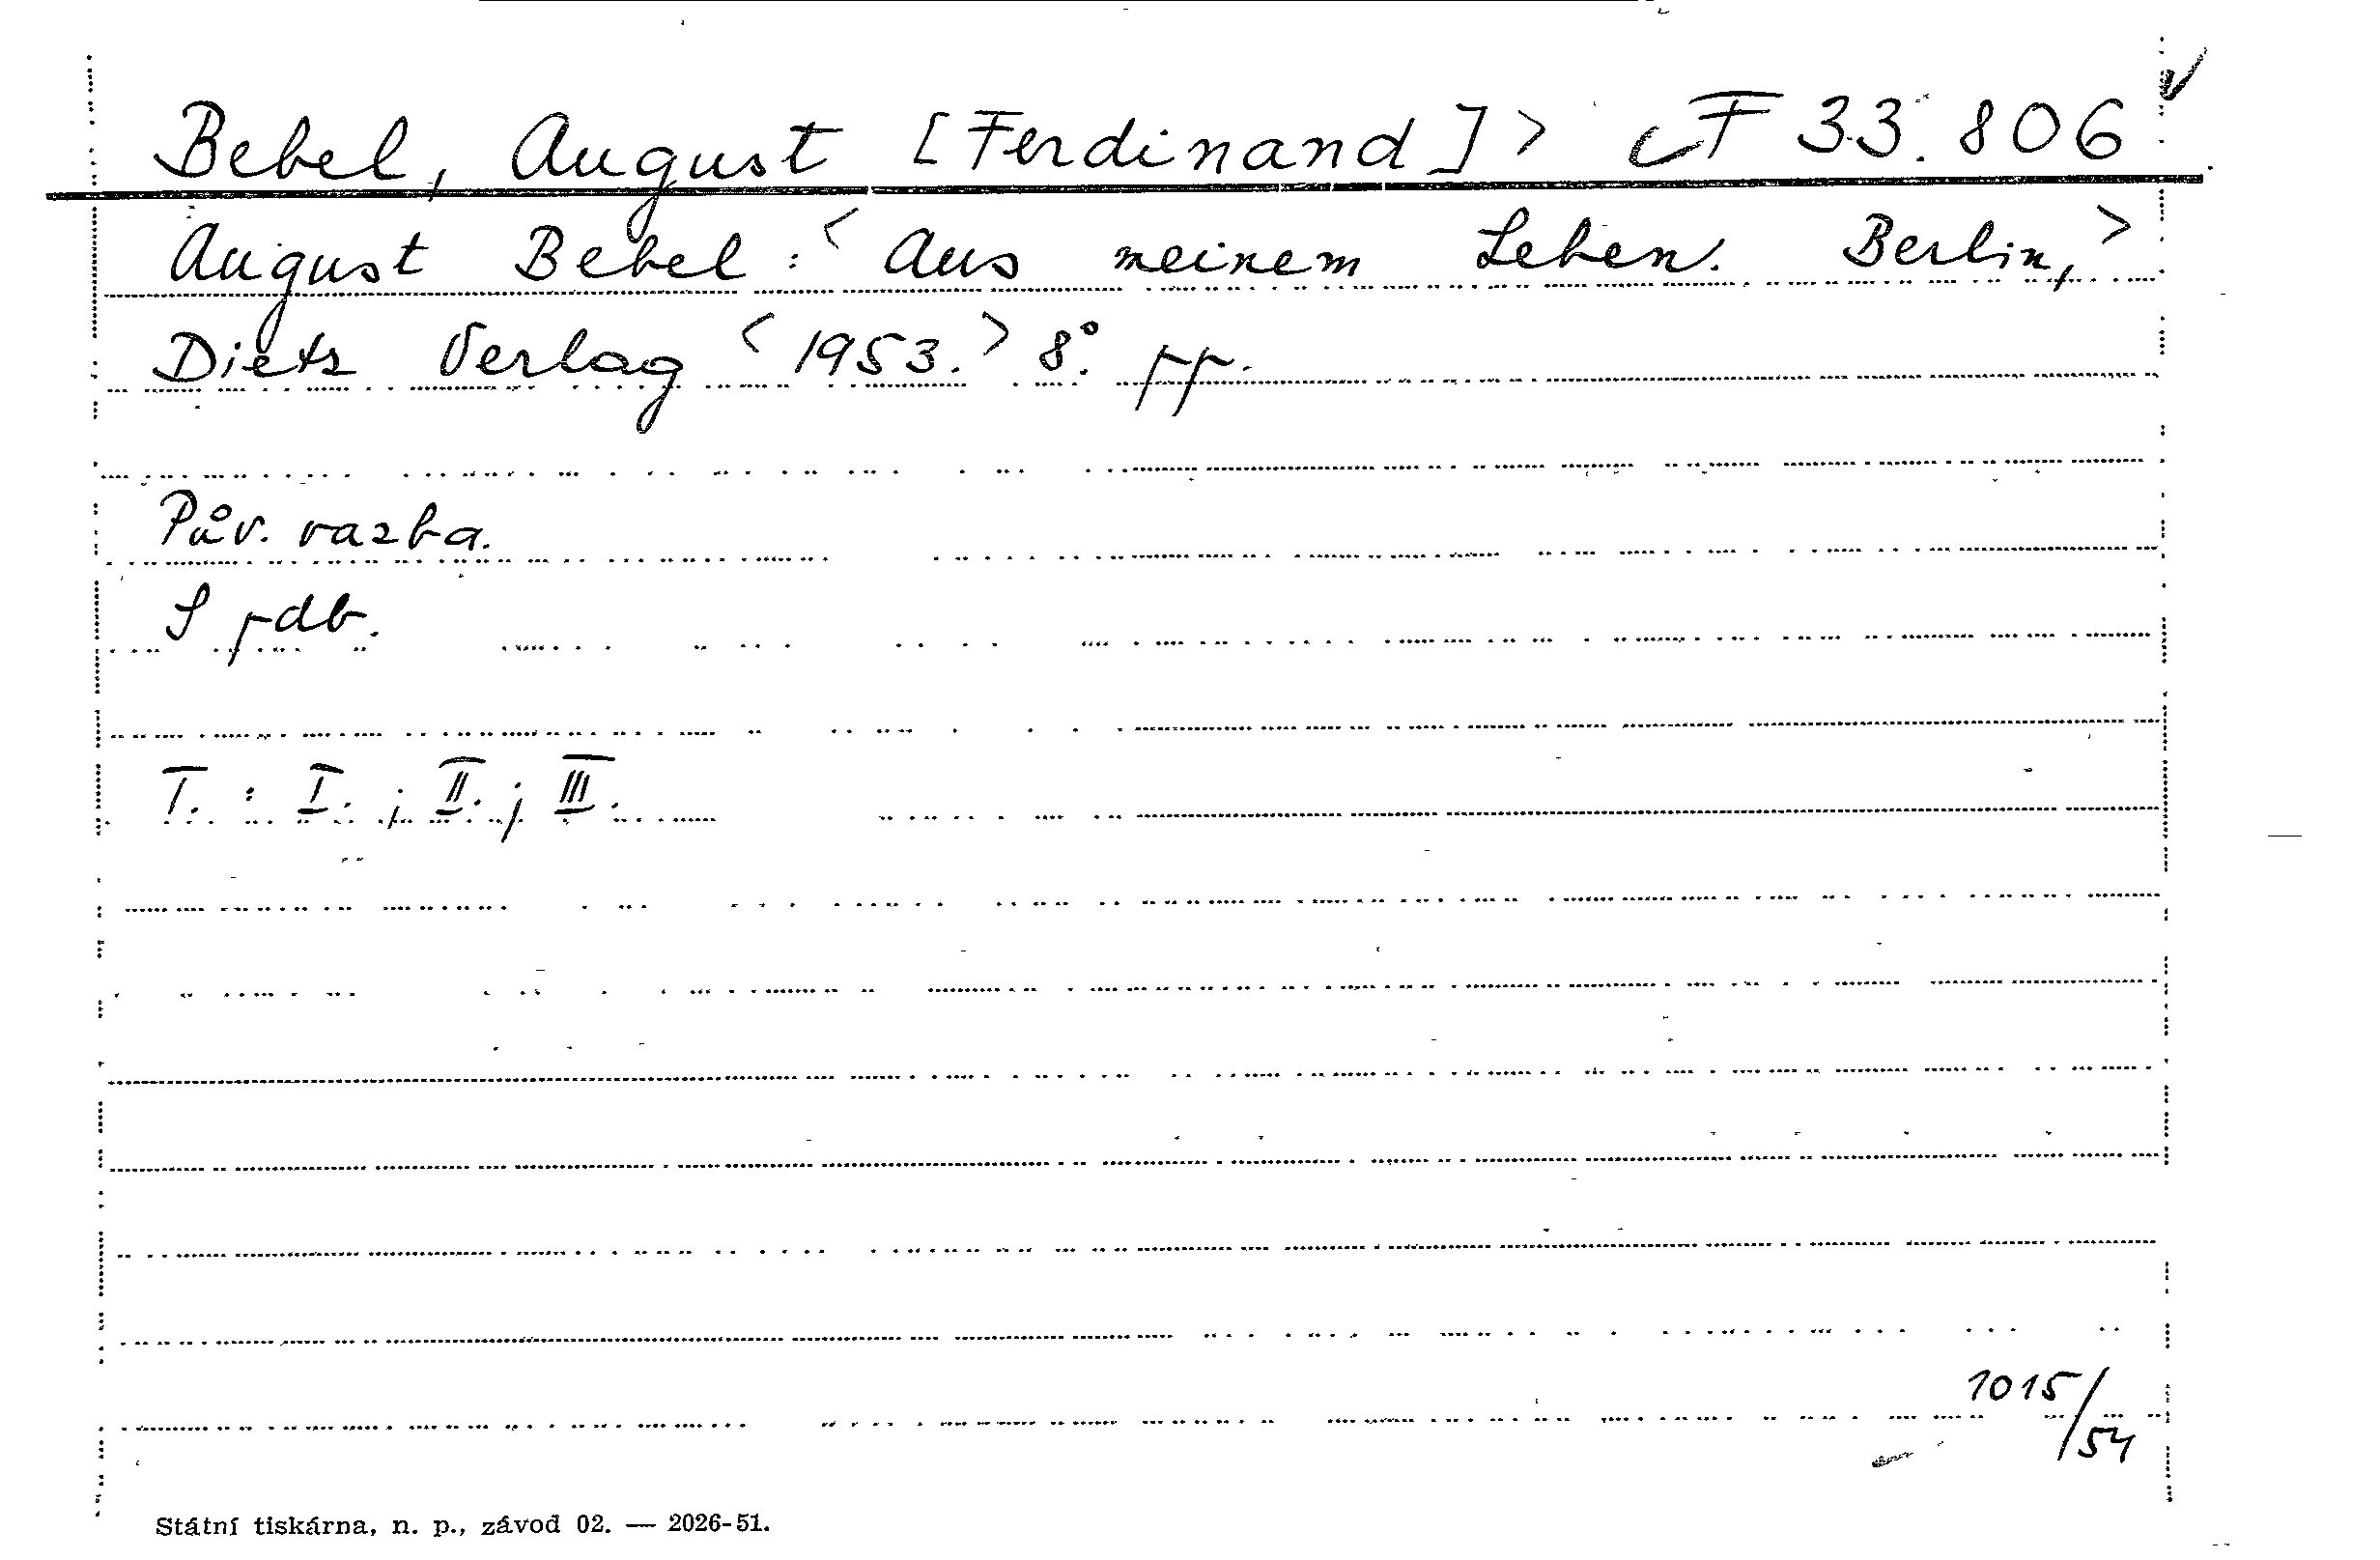 Bebel, August [Ferdinand] > F 33.806
August Bebel: < Aus meinem Leben. Berlin, >
Dietz Verlag < 1953. > 8°. pp.
Pův. vazba.
S pdb.
T. : I. ; II. ; III.
1015/54
Státní tiskárna, n. p., závod 02. — 2026-51.